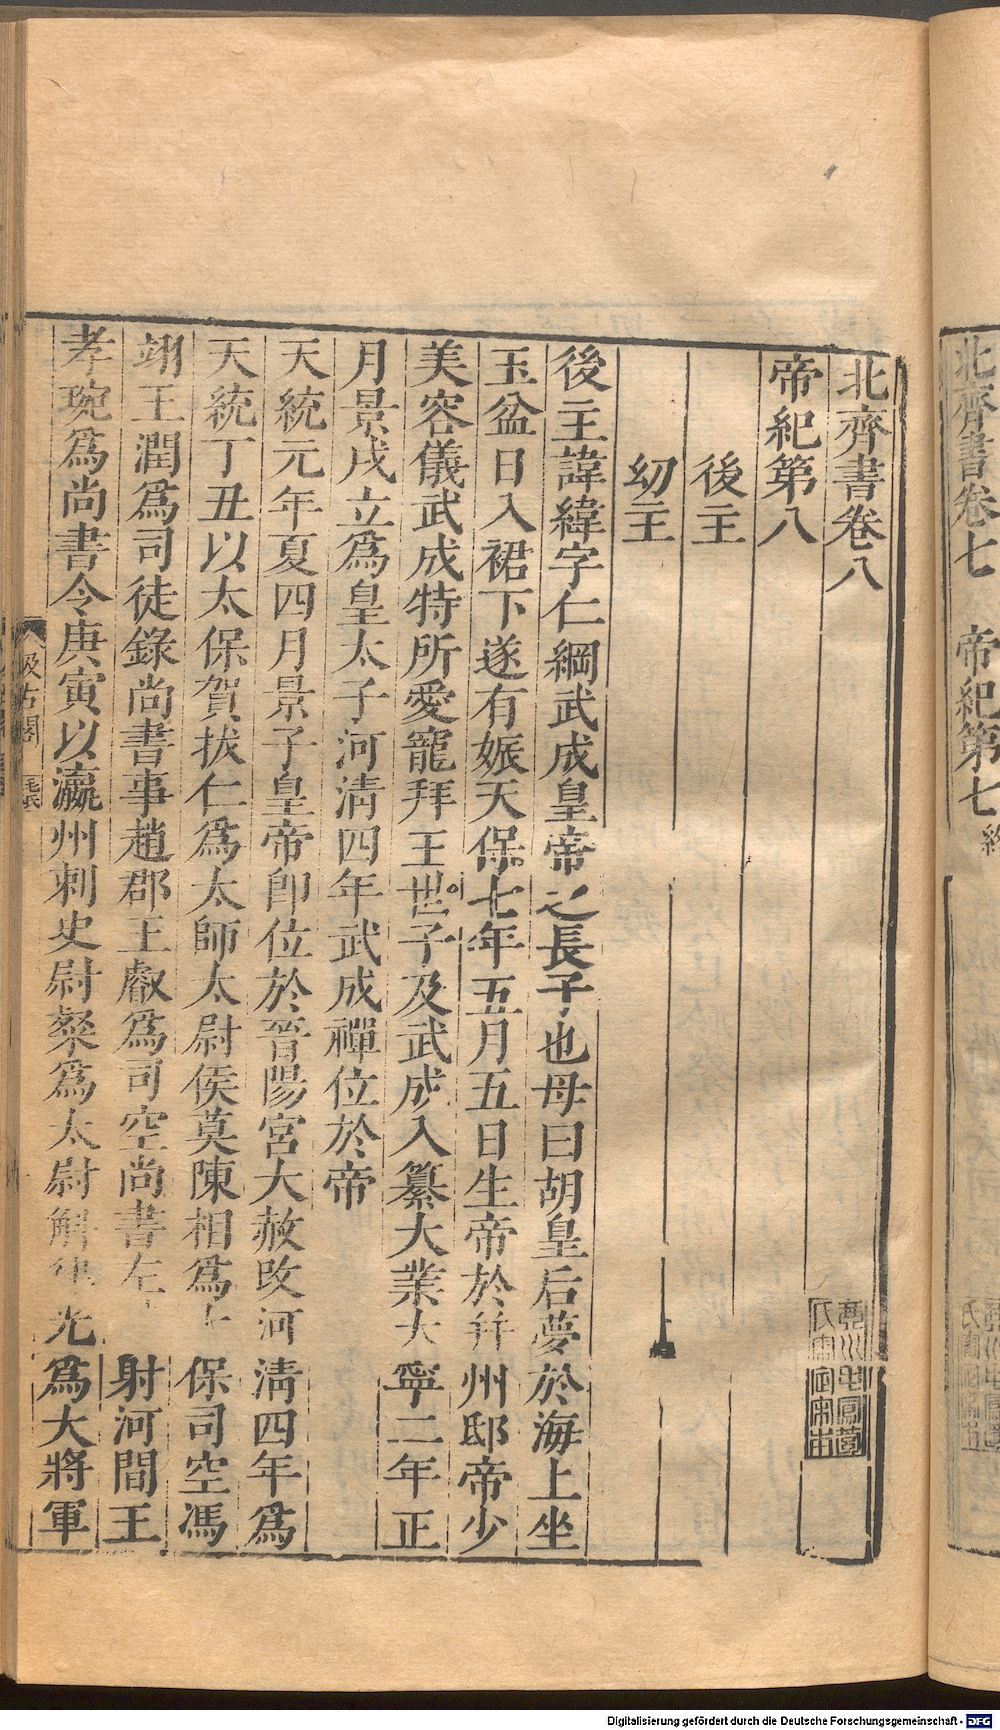 北齊書卷七　帝紀第七　終
北齊書卷八
帝紀第八
後主
幼主
後主諱緯字仁綱武成皇帝之長子也母曰胡皇后夢於海上坐
玉盆日入裙下遂有娠天保七年五月五日生帝於幷州邸帝少
美容儀武成特所愛寵拜王世子及武成入纂大業大寧二年正
月景戌立爲皇太子河清四年武成禪位於帝
天統元年夏四月景子皇帝即位於晉陽宮大赦改河清四年爲
天統丁丑以太保賀拔仁爲太師太尉侯莫陳相爲太保司空馮
翊王潤爲司徒錄尚書事趙郡王叡爲司空尚書左射河間王
孝琬爲尚書令庚寅以瀛州刺史尉粲爲太尉斛光爲大將軍
汲古閣
毛氏
Digitalisierung gefördert durch die Deutsche Forschungsgemeinschaft - DFG